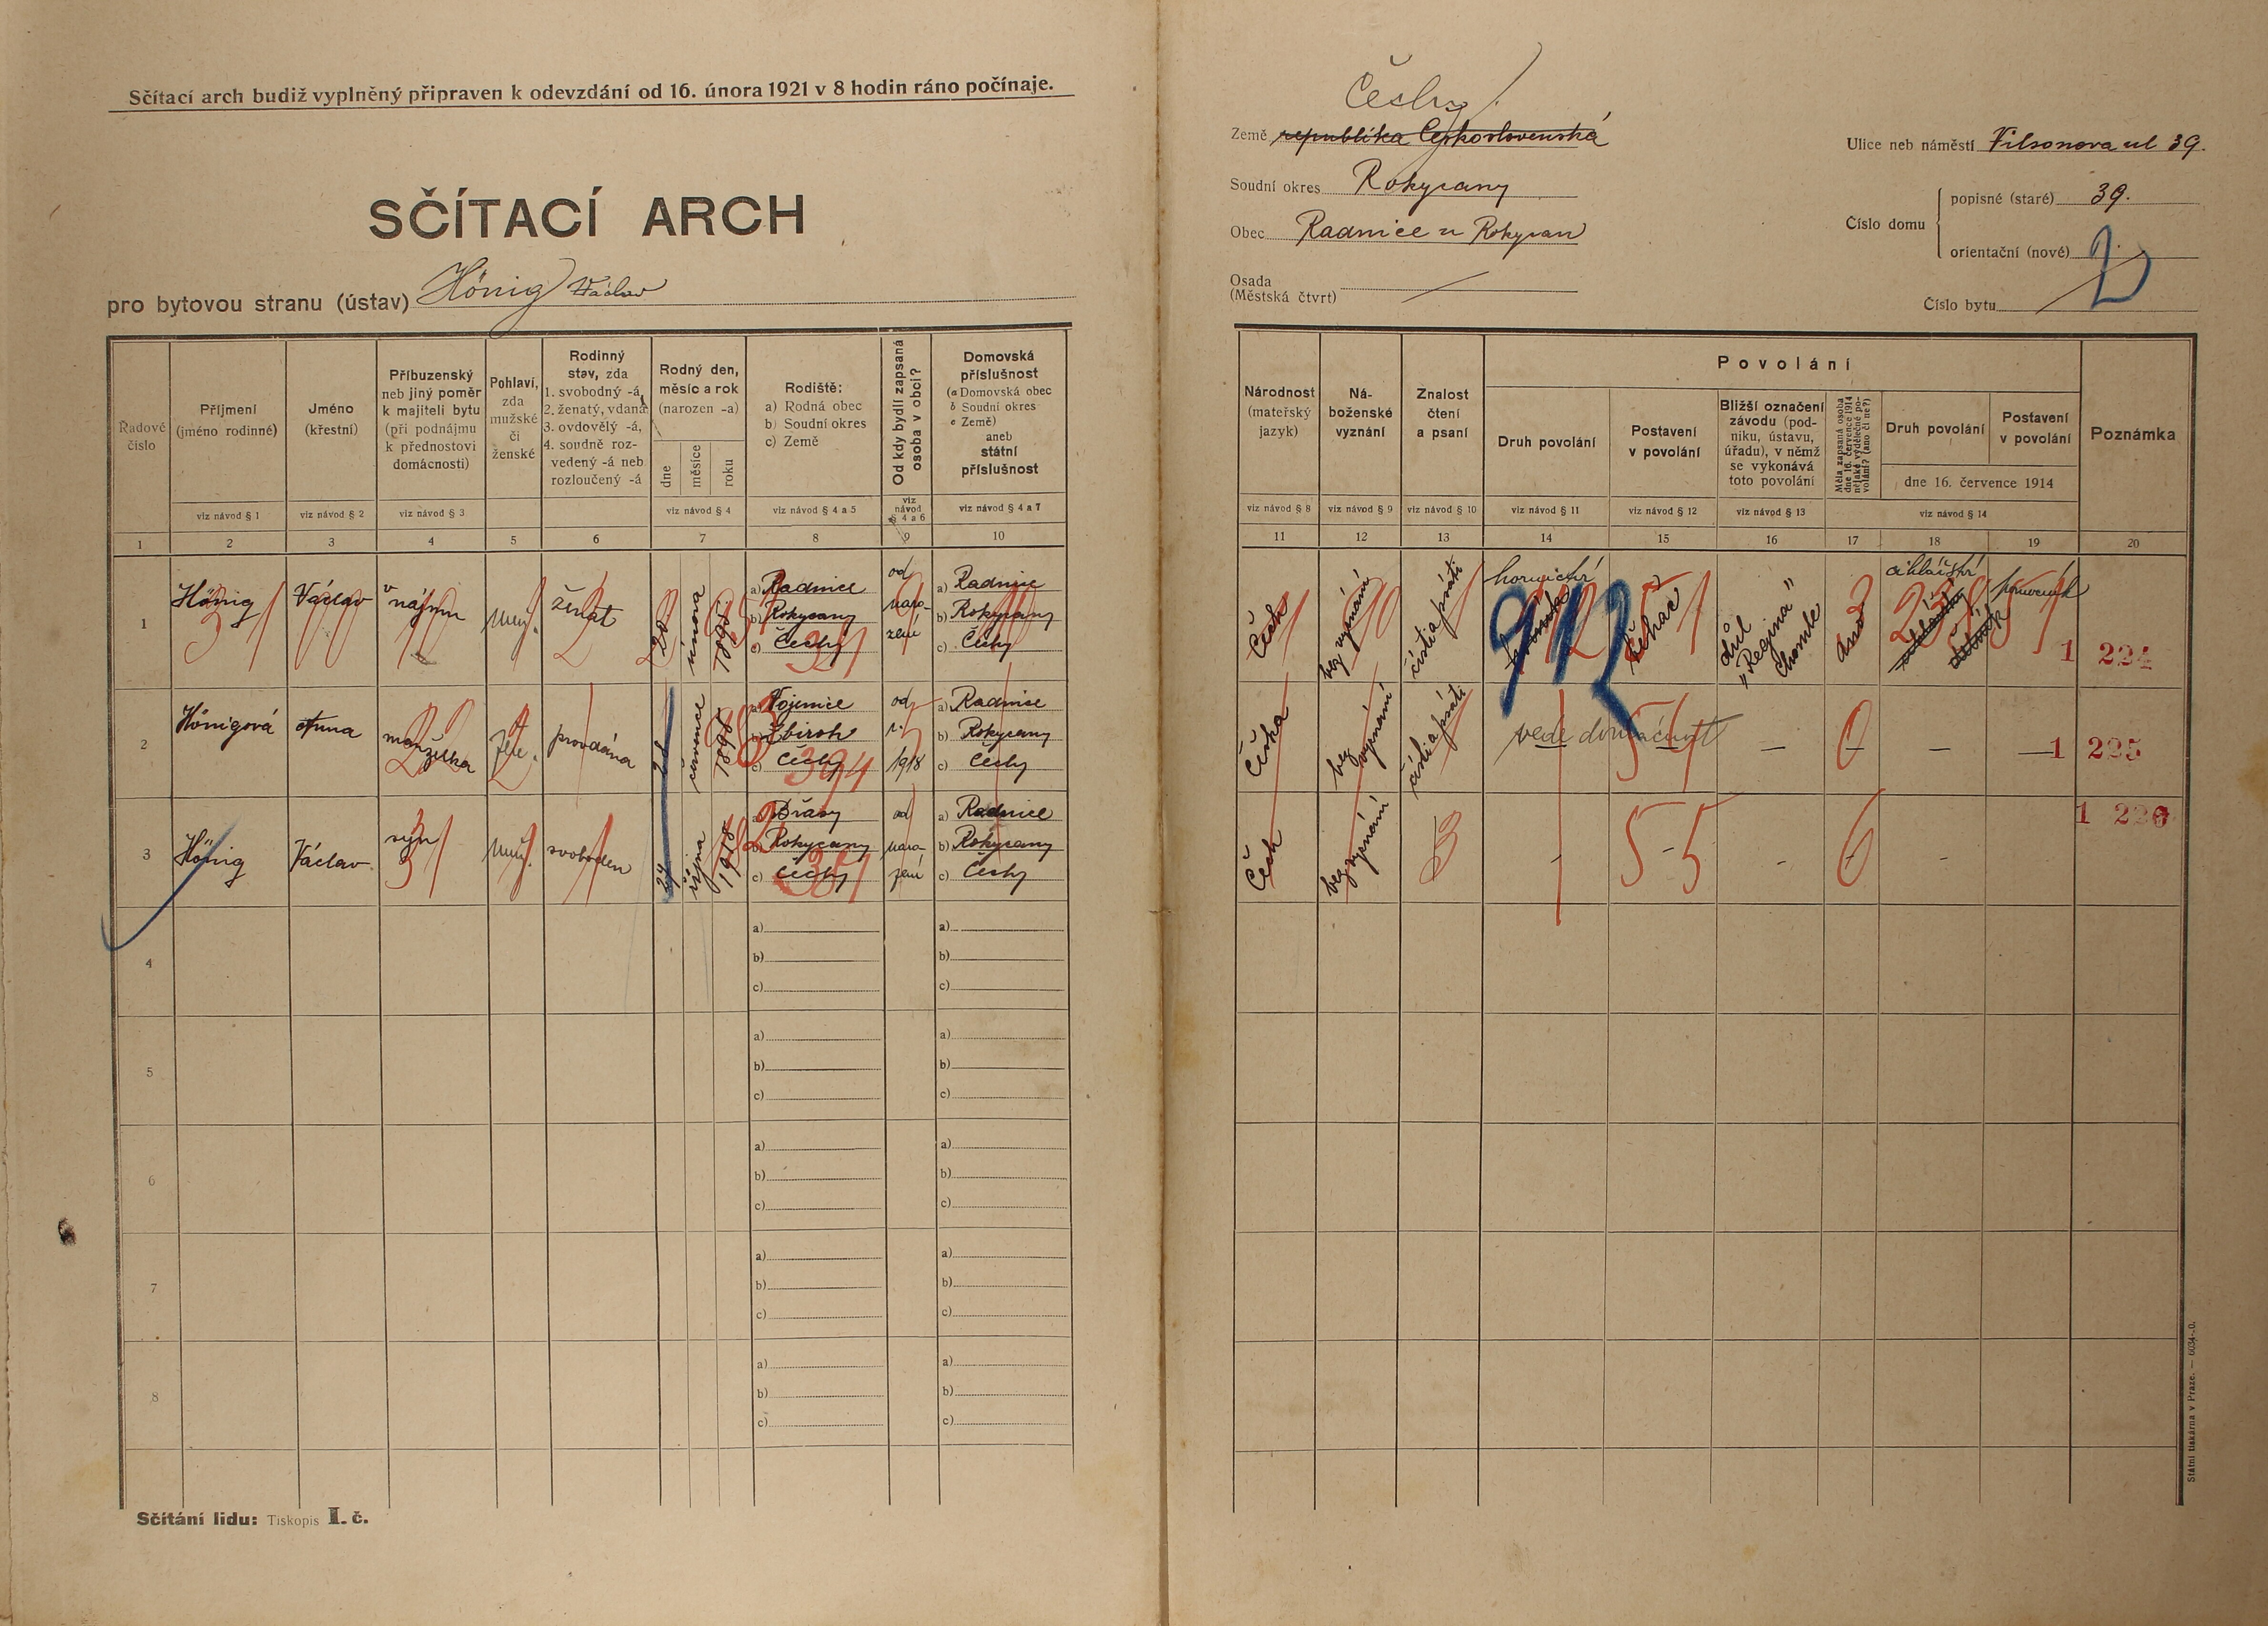 Sčítací arch budiž vyplněný připraven k odevzdání od 16. února 1921 v 8 hodin ráno počínaje.
SČÍTACÍ ARCH
pro bytovou stranu (ústav) Hönig Václav
Čechy
Země republika Československá
Soudní okres Rokycany
Obec Radnice u Rokycan
Osada
(Městská čtvrt)
Ulice neb náměstí Vilsonova ul 39.
Číslo domu
popisné (staré) 39.
orientační (nové)
Číslo bytu
Řadové
číslo
Příjmení
(jméno rodinné)
Jméno
(křestní)
Příbuzenský
neb jiný poměr
k majiteli bytu
(při podnájmu
k přednostovi
domácnosti)
Pohlaví,
zda
mužské
či
ženské
Rodinný
stav, zda
1. svobodný -á,
2. ženatý, vdaná
3. ovdovělý -á,
4. soudně roz-
vedený -á neb
rozloučený -á
Rodný den,
měsíc a rok
(narozen -a)
dne
měsíce
roku
Rodiště:
a) Rodná obec
b) Soudní okres
c) Země
Od kdy bydlí zapsaná
osoba v obci?
Domovská
příslušnost
(a Domovská obec
b Soudní okres
c Země)
aneb
státní
příslušnost
viz návod § 1
viz návod § 2
viz návod § 3
viz návod § 4
viz návod § 4 a 5
viz
návod
§ 4 a 6
viz návod § 4 a 7
1 2 3 4 5 6 7 8 9 10
Národnost
(mateřský
jazyk)
Ná-
boženské
vyznání
Znalost
čtení
a psaní
Povolání
Druh povolání
Postavení
v povolání
Bližší označení
závodu (pod-
niku, ústavu,
úřadu), v němž
se vykonává
toto povolání
Měla zapsaná osoba
dne 16. července 1914
nějaké výdělečné po-
volání? (ano či ne?)
Druh povolání
Postavení
v povolání
dne 16. července 1914
Poznámka
viz návod § 8
viz návod § 9
viz návod § 10
viz návod § 11
viz návod § 12
viz návod § 13
viz návod § 14
11 12 13 14 15 16 17 18 19 20
1
Hönig
Václav
v nájmu
muž.
ženat
20
února
a) Radnice
b) Rokycany
c) Čechy
od
naro-
zení
a) Radnice
b) Rokycany
c) Čechy
Čech
bez vyznání
čísti a psáti
hornictví
912
51
důl
„Regina“
ano
3
cihlářství
1 224
2
Hönigová
Anna
manželka
žen.
provdána
července
b) Zbiroh
c) Čechy
394
od
1918
a) Radnice
b) Rokycany
c) Čechy
Češka
bez
vyznání
čísti a psáti
vede domácnost
–
0
–
–
1 225
3
Hönig
Václav
syn
muž.
svoboden
24
října
1918
a) Břasy
b) Rokycany
c) Čechy
od
naro
zení
a) Radnice
b) Rokycany
c) Čechy
Čech
bez vyznání
3
-
5-5
-
6
-
1 226
4
a)
b)
c)
a)
b)
c)
5
a)
b)
c)
a)
b)
c)
6
a)
b)
c)
a)
b)
c)
7
a)
b)
c)
a)
b)
c)
8
a)
b)
c)
a)
b)
c)
Sčítání lidu: Tiskopis I. č.
Státní tiskárna v Praze. — 6034-20.